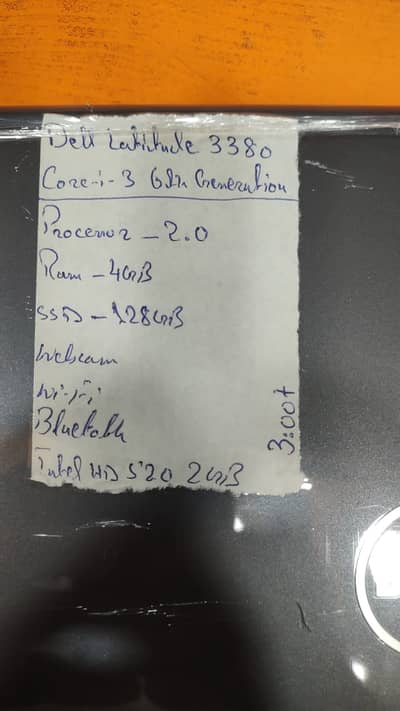 Dell Latitude 3380
Core-i-3 6th Generation
Processor - 2.0
Ram - 4GB
SSD - 128GB
Webcam
Wi-fi
Bluetooth
Intel HD 520 2GB
3:00+